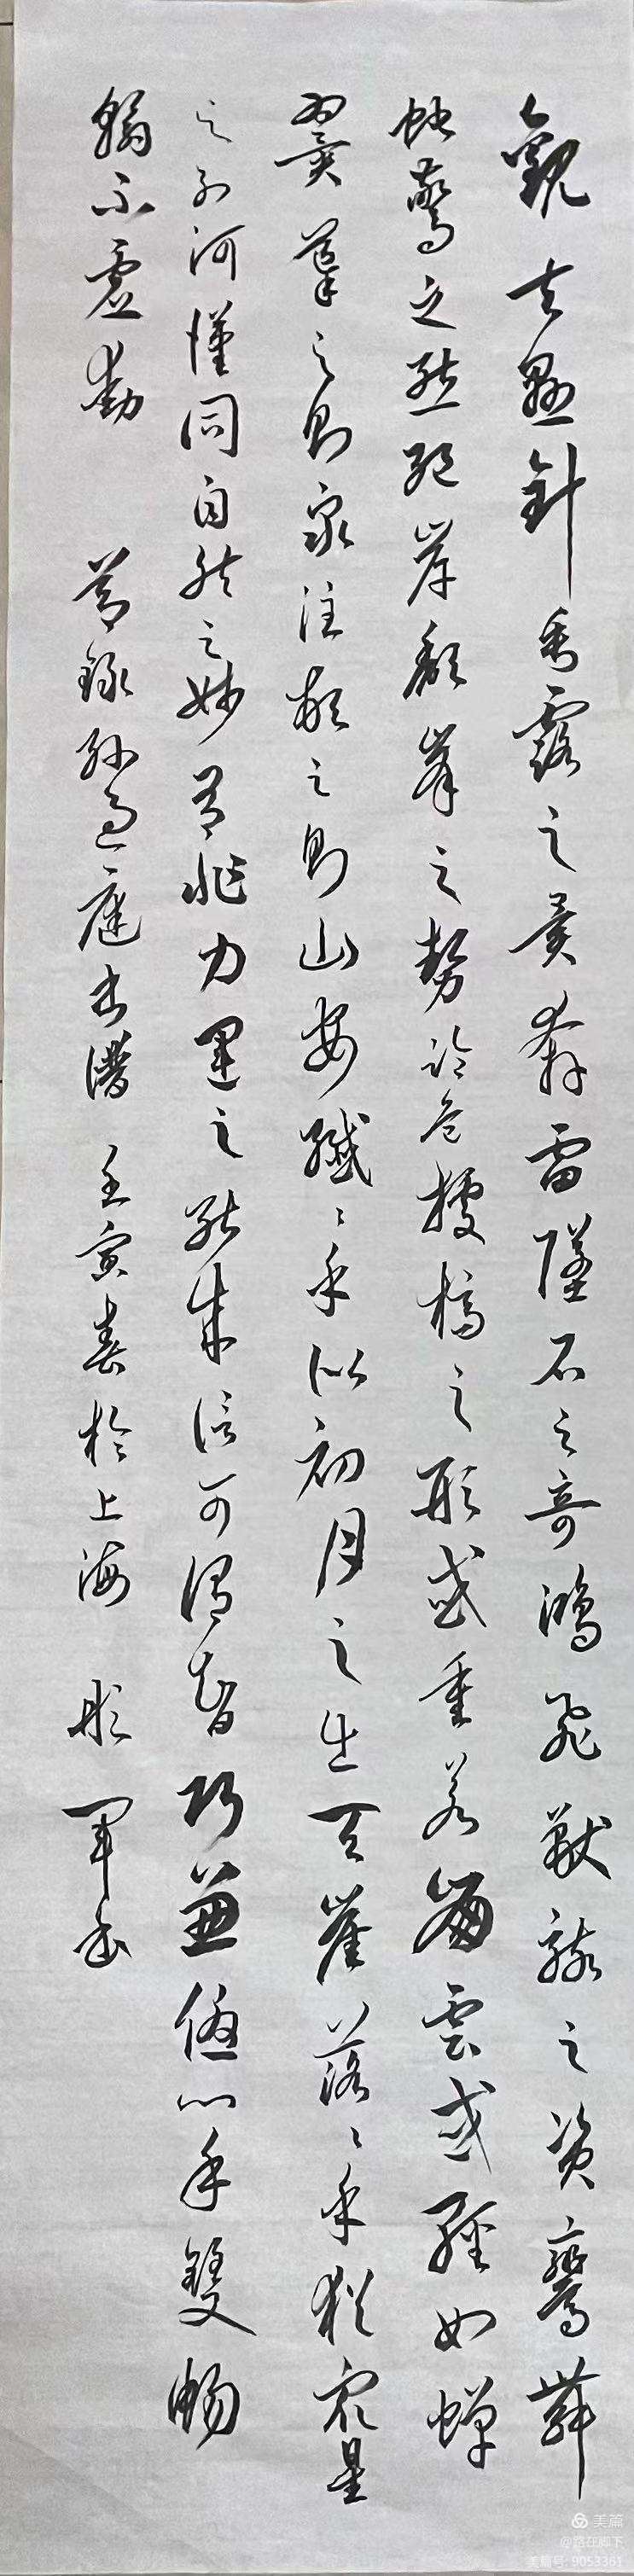 觀夫懸針垂露之異奔雷墜石之奇鴻飛獸駭之資鸞舞
蛇驚之態絕岸頹峯之勢臨危據槁之形或重若崩雲或輕如蟬
翼導之則泉注頓之則山安纖纖乎似初月之出天崖落落乎猶眾星
之列河漢同自然之妙有非力運之能成信可謂智巧兼優心手雙暢
翰不虛動 節錄孫過庭書譜 壬寅春於上海 彤軍書
美篇
@路在脚下
美篇号:9053361